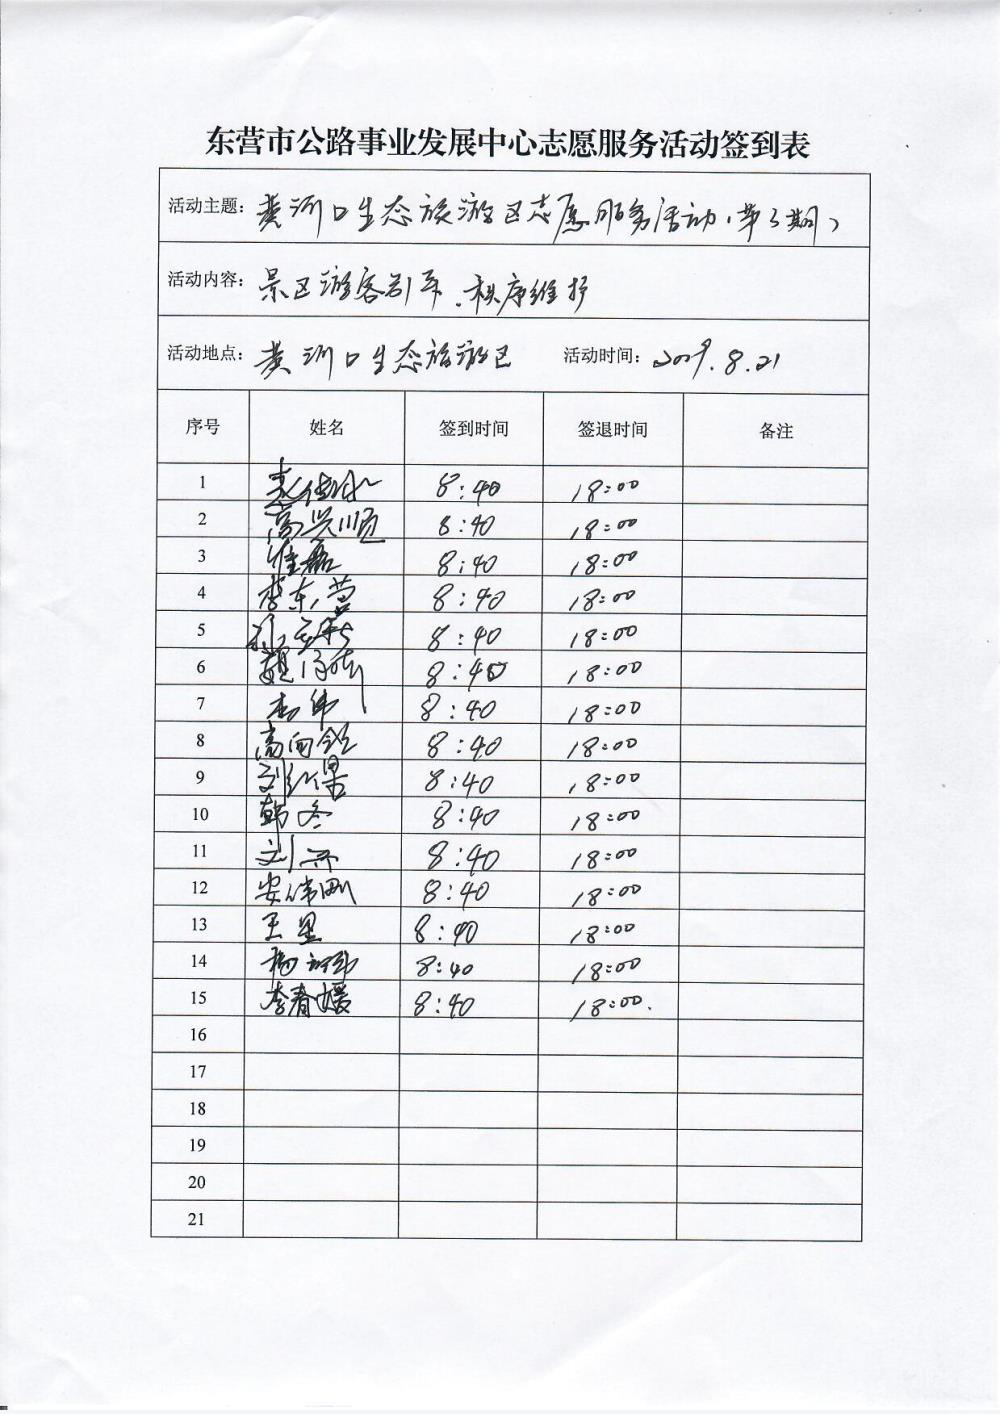 东营市公路事业发展中心志愿服务活动签到表
活动主题：黄河口生态旅游区志愿服务活动（第3期）
活动内容：景区游客引导、秩序维护
活动地点：黄河口生态旅游区 活动时间：2019.8.21
序号 姓名 签到时间 签退时间 备注
1 8:40 18:00
2 高兴顺 8:40 18:00
3 崔磊 8:40 18:00
4 李东营 8:40 18:00
5 8:40 18:00
6 8:40 18:00
7 李伟 8:40 18:00
8 高向领 8:40 18:00
9 刘红果 8:40 18:00
10 韩冬 8:40 18:00
11 刘 8:40 18:00
12 安伟刚 8:40 18:00
13 王星 8:40 18:00
14 杨 8:40 18:00
15 李春媛 8:40 18:00.
16
17
18
19
20
21